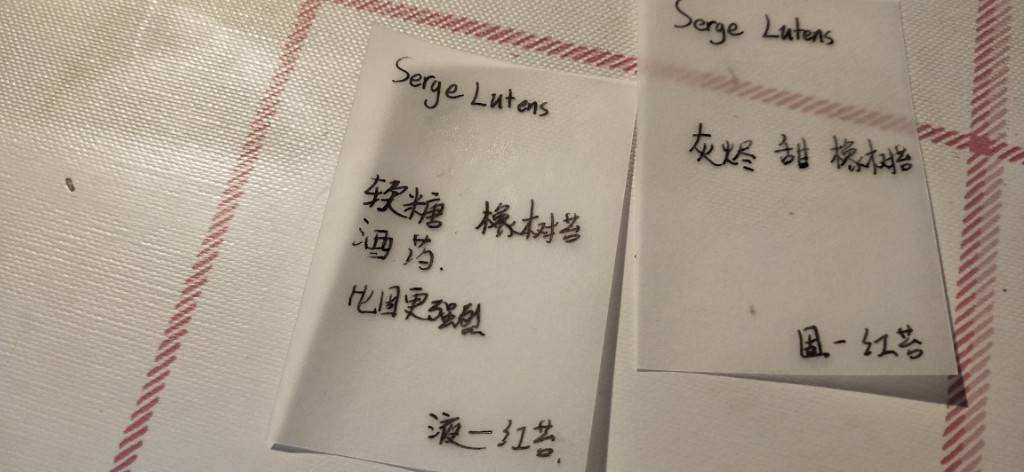 Serge Lutens
软糖 橡树苔
酒 药.
比固更强烈
液一红苔.
Serge Lutens
灰烬 甜 橡树苔
固一红苔